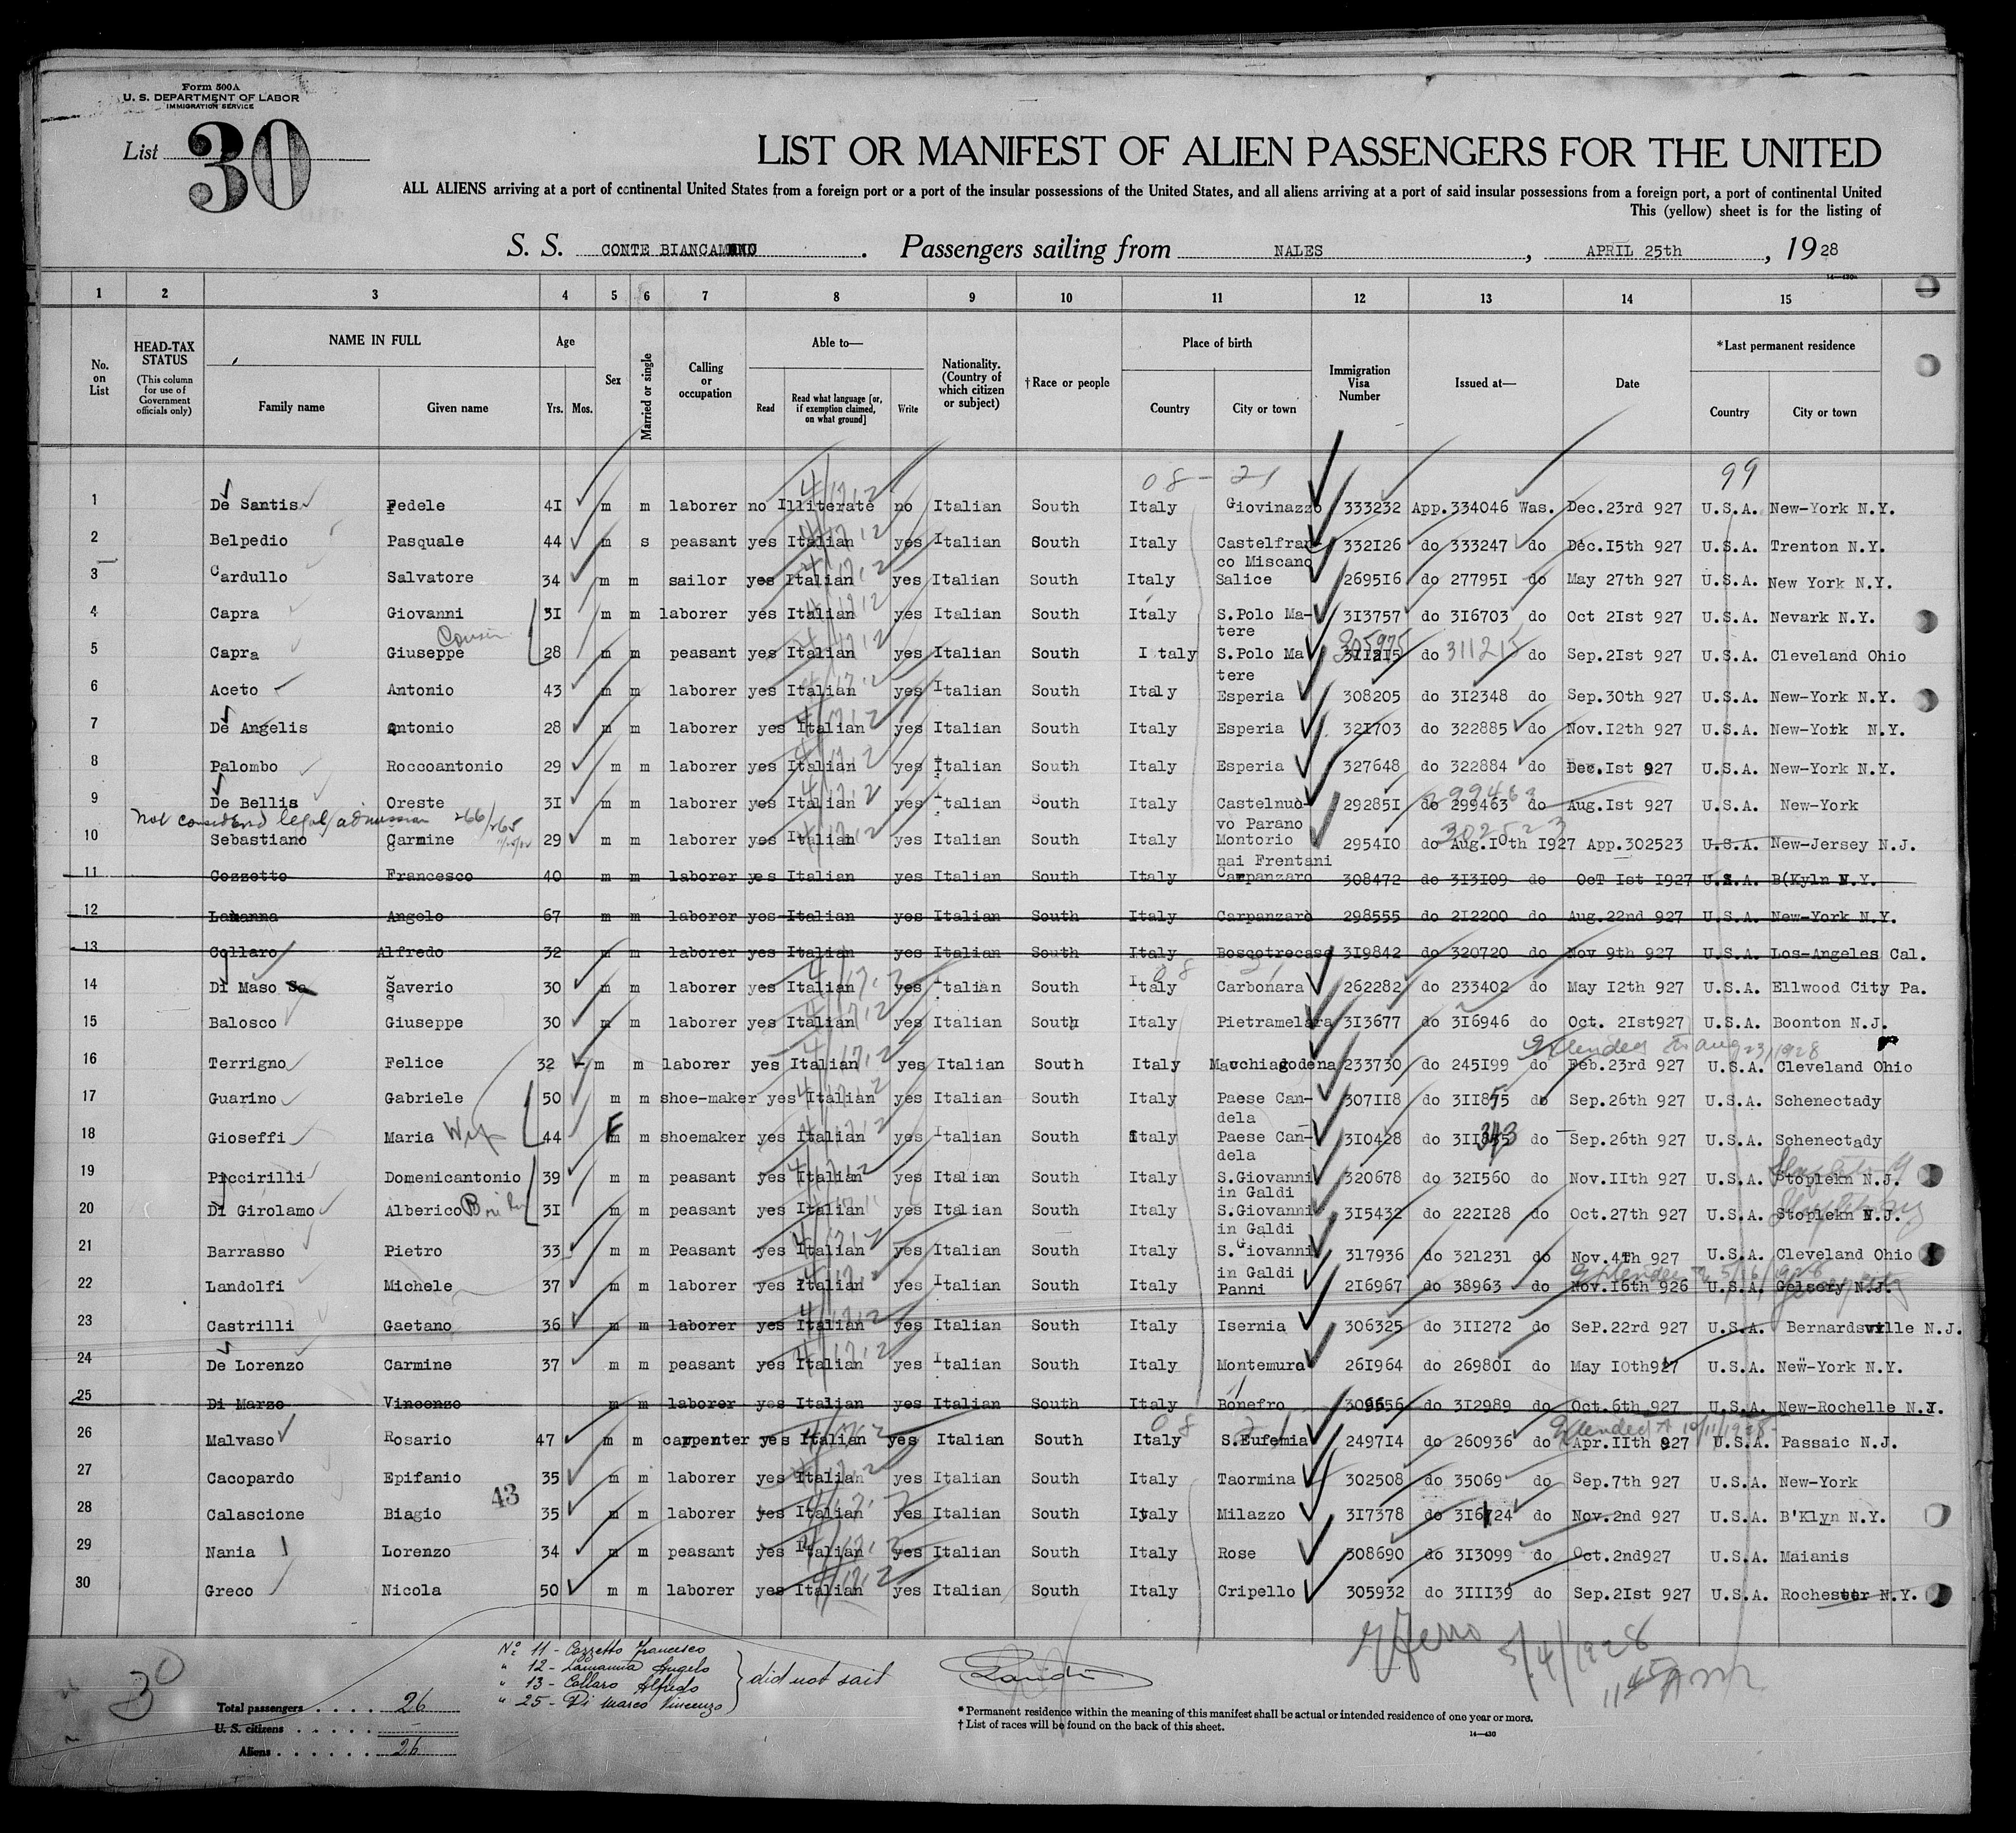 Form 500A
U. S. DEPARTMENT OF LABOR
IMMIGRATION SERVICE
List 30
LIST OR MANIFEST OF ALIEN PASSENGERS FOR THE UNITED
ALL ALIENS arriving at a port of continental United States from a foreign port or a port of the insular possessions of the United States, and all aliens arriving at a port of said insular possessions from a foreign port, a port of continental United
This (yellow) sheet is for the listing of
S. S. CONTE BIANCAMANO . Passengers sailing from NALES , APRIL 25th , 1928
14—430
1 2 3 4 5 6 7 8 9 10 11 12 13 14 15
No. on List
HEAD-TAX STATUS (This column for use of Government officials only)
NAME IN FULL
Family name Given name
Age
Yrs. Mos.
Sex
Married or single
Calling or occupation
Able to—
Read Read what language [or, if exemption claimed, on what ground] Write
Nationality. (Country of which citizen or subject)
† Race or people
Place of birth
Country City or town
Immigration Visa Number
Issued at—
Date
*Last permanent residence
Country City or town
08 - 21 99
1 De Santis Fedele 4I m m laborer no Illiterate no Italian South Italy Giovinazzo 333232 App.334046 Was. Dec.23rd 927 U.S.A. New-York N.Y.
2 Belpedio Pasquale 44 m s peasant yes Italian yes Italian South Italy Castelfran- 332I26 do 333247 do Dec.I5th 927 U.S.A. Trenton N.Y.
co Miscano
3 Cardullo Salvatore 34 m m sailor yes Italian yes Italian South Italy Salice 2695I6 do 27795I do May 27th 927 U.S.A. New York N.Y.
4 Capra Giovanni 3I m m laborer yes Italian yes Italian South Italy S.Polo Ma- 3I3757 do 3I6703 do Oct 2Ist 927 U.S.A. Nevark N.Y.
tere
Cousin
5 Capra Giuseppe 28 m m peasant yes Italian yes Italian South Italy S.Polo Ma 305975 3II2I5 do 311215 do Sep.2Ist 927 U.S.A. Cleveland Ohio
tere
6 Aceto Antonio 43 m m laborer yes Italian yes Italian South Italy Esperia 308205 do 3I2348 do Sep.30th 927 U.S.A. New-York N.Y.
7 De Angelis Antonio 28 m m laborer yes Italian yes Italian South Italy Esperia 32I703 do 322885 do Nov.I2th 927 U.S.A. New-York N.Y.
8 Palombo Roccoantonio 29 m m laborer yes Italian yes Italian South Italy Esperia 327648 do 322884 do Dec.Ist 927 U.S.A. New-York N.Y.
9 De Bellis Oreste 3I m m laborer yes Italian yes Italian South Italy Castelnuo- 29285I do 299463 do Aug.Ist 927 U.S.A. New-York
vo Parano
Not considered legal admission 266/265
10 Sebastiano Carmine 29 m m laborer yes Italian yes Italian South Italy Montorio 2954I0 do Aug.I0th I927 App.302523 U.S.A. New-Jersey N.J.
302523
nai Frentani
11 Cozzetto Francesco 40 m m laborer yes Italian yes Italian South Italy Carpanzaro 308472 do 3I3I09 do OcT Ist I927 U.S.A. B(Kyln N.Y.
12 Lamanna Angelo 67 m m laborer yes Italian yes Italian South Italy Carpanzarò 298555 do 2I2200 do Aug.22nd 927 U.S.A. New-York N.Y.
13 Collaro Alfredo 32 m m laborer yes Italian yes Italian South Italy Bosqotrecase 3I9842 do 320720 do Nov 9th 927 U.S.A. Los-Angeles Cal.
14 Di Maso Saverio 30 m m laborer yes Italian yes Italian South Italy Carbonara 262282 do 233402 do May I2th 927 U.S.A. Ellwood City Pa.
15 Balosco Giuseppe 30 m m laborer yes Italian yes Italian South Italy Pietramelara 3I3677 do 3I6946 do Oct. 2Ist927 U.S.A. Boonton N.J.
Extended to Aug 23/1928
16 Terrigno Felice 32 m m laborer yes Italian yes Italian South Italy Macchiagodena 233730 do 245I99 do Feb.23rd 927 U.S.A. Cleveland Ohio
17 Guarino Gabriele 50 m m shoe-maker yes Italian yes Italian South Italy Paese Can- 307II8 do 3II875 do Sep.26th 927 U.S.A. Schenectady
dela
18 Gioseffi Maria Wife 44 F m shoemaker yes Italian yes Italian South Italy Paese Can- 3I0428 do do Sep.26th 927 U.S.A. Schenectady
dela
19 Piccirilli Domenicantonio 39 m m peasant yes Italian yes Italian South Italy S.Giovanni 320678 do 32I560 do Nov.IIth 927 U.S.A. Stoplekn N.J.
in Galdi
20 Di Girolamo Alberico 3I m m peasant yes Italian yes Italian South Italy S.Giovanni 3I5432 do 222I28 do Oct.27th 927 U.S.A. Stoplekn N.J.
in Galdi
21 Barrasso Pietro 33 m m Peasant yes Italian yes Italian South Italy S.Giovanni 3I7936 do 32I23I do Nov.4Th 927 U.S.A. Cleveland Ohio
in Galdi
Extended to 5/16/1928
22 Landolfi Michele 37 m m laborer yes Italian yes Italian South Italy Panni 2I6967 do 38963 do Nov.I6th 926 U.S.A. Gelsery N.J.
23 Castrilli Gaetano 36 m m laborer yes Italian yes Italian South Italy Isernia 306325 do 3II272 do SeP.22rd 927 U.S.A. Bernardsville N.J.
24 De Lorenzo Carmine 37 m m peasant yes Italian yes Italian South Italy Montemura 26I964 do 26980I do May I0th927 U.S.A. New-York N.Y.
25 Di Marzo Vincenzo m m laborer yes Italian yes Italian South Italy Bonefro 309656 do 3I2989 do Oct.6th 927 U.S.A. New-Rochelle N.Y.
08 21 Extended to 10/11/1928
26 Malvaso Rosario 47 m m carpenter yes Italian yes Italian South Italy S.Eufemia 2497I4 do 260936 do Apr.IIth 927 U.S.A. Passaic N.J.
27 Cacopardo Epifanio 35 m m laborer yes Italian yes Italian South Italy Taormina 302508 do 35069 do Sep.7th 927 U.S.A. New-York
43
28 Calascione Biagio 35 m m laborer yes Italian yes Italian South Italy Milazzo 3I7378 do 3I6124 do Nov.2nd 927 U.S.A. B'Klyn N.Y.
29 Nania Lorenzo 34 m m peasant yes Italian yes Italian South Italy Rose 308690 do 3I3099 do Oct.2nd927 U.S.A. Maianis
30 Greco Nicola 50 m m laborer yes Italian yes Italian South Italy Cripello 305932 do 3III39 do Sep.2Ist 927 U.S.A. Rochester N.Y.
No. 11 - Cozzetto Francesco
" 12 - Lamanna Angelo
" 13 - Collaro Alfredo
" 25 - Di Marco Vincenzo
did not sail
5/4/1928
1145 AM
30
Total passengers . . . . 26
U. S. citizens . . . . . —
Aliens . . . . . . 26
* Permanent residence within the meaning of this manifest shall be actual or intended residence of one year or more.
† List of races will be found on the back of this sheet.
14—430